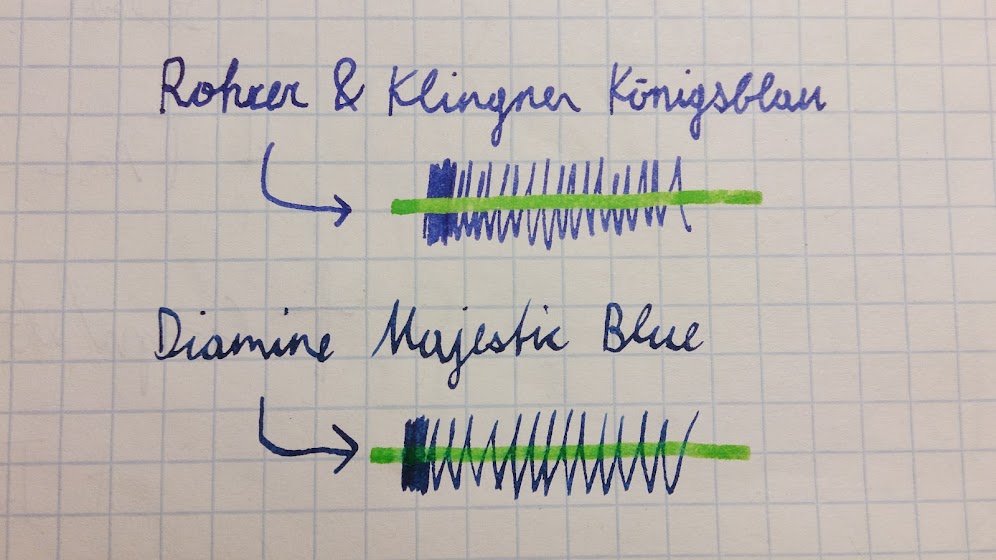 Rohrer & Klingner Königsblau
Diamine Majestic Blue